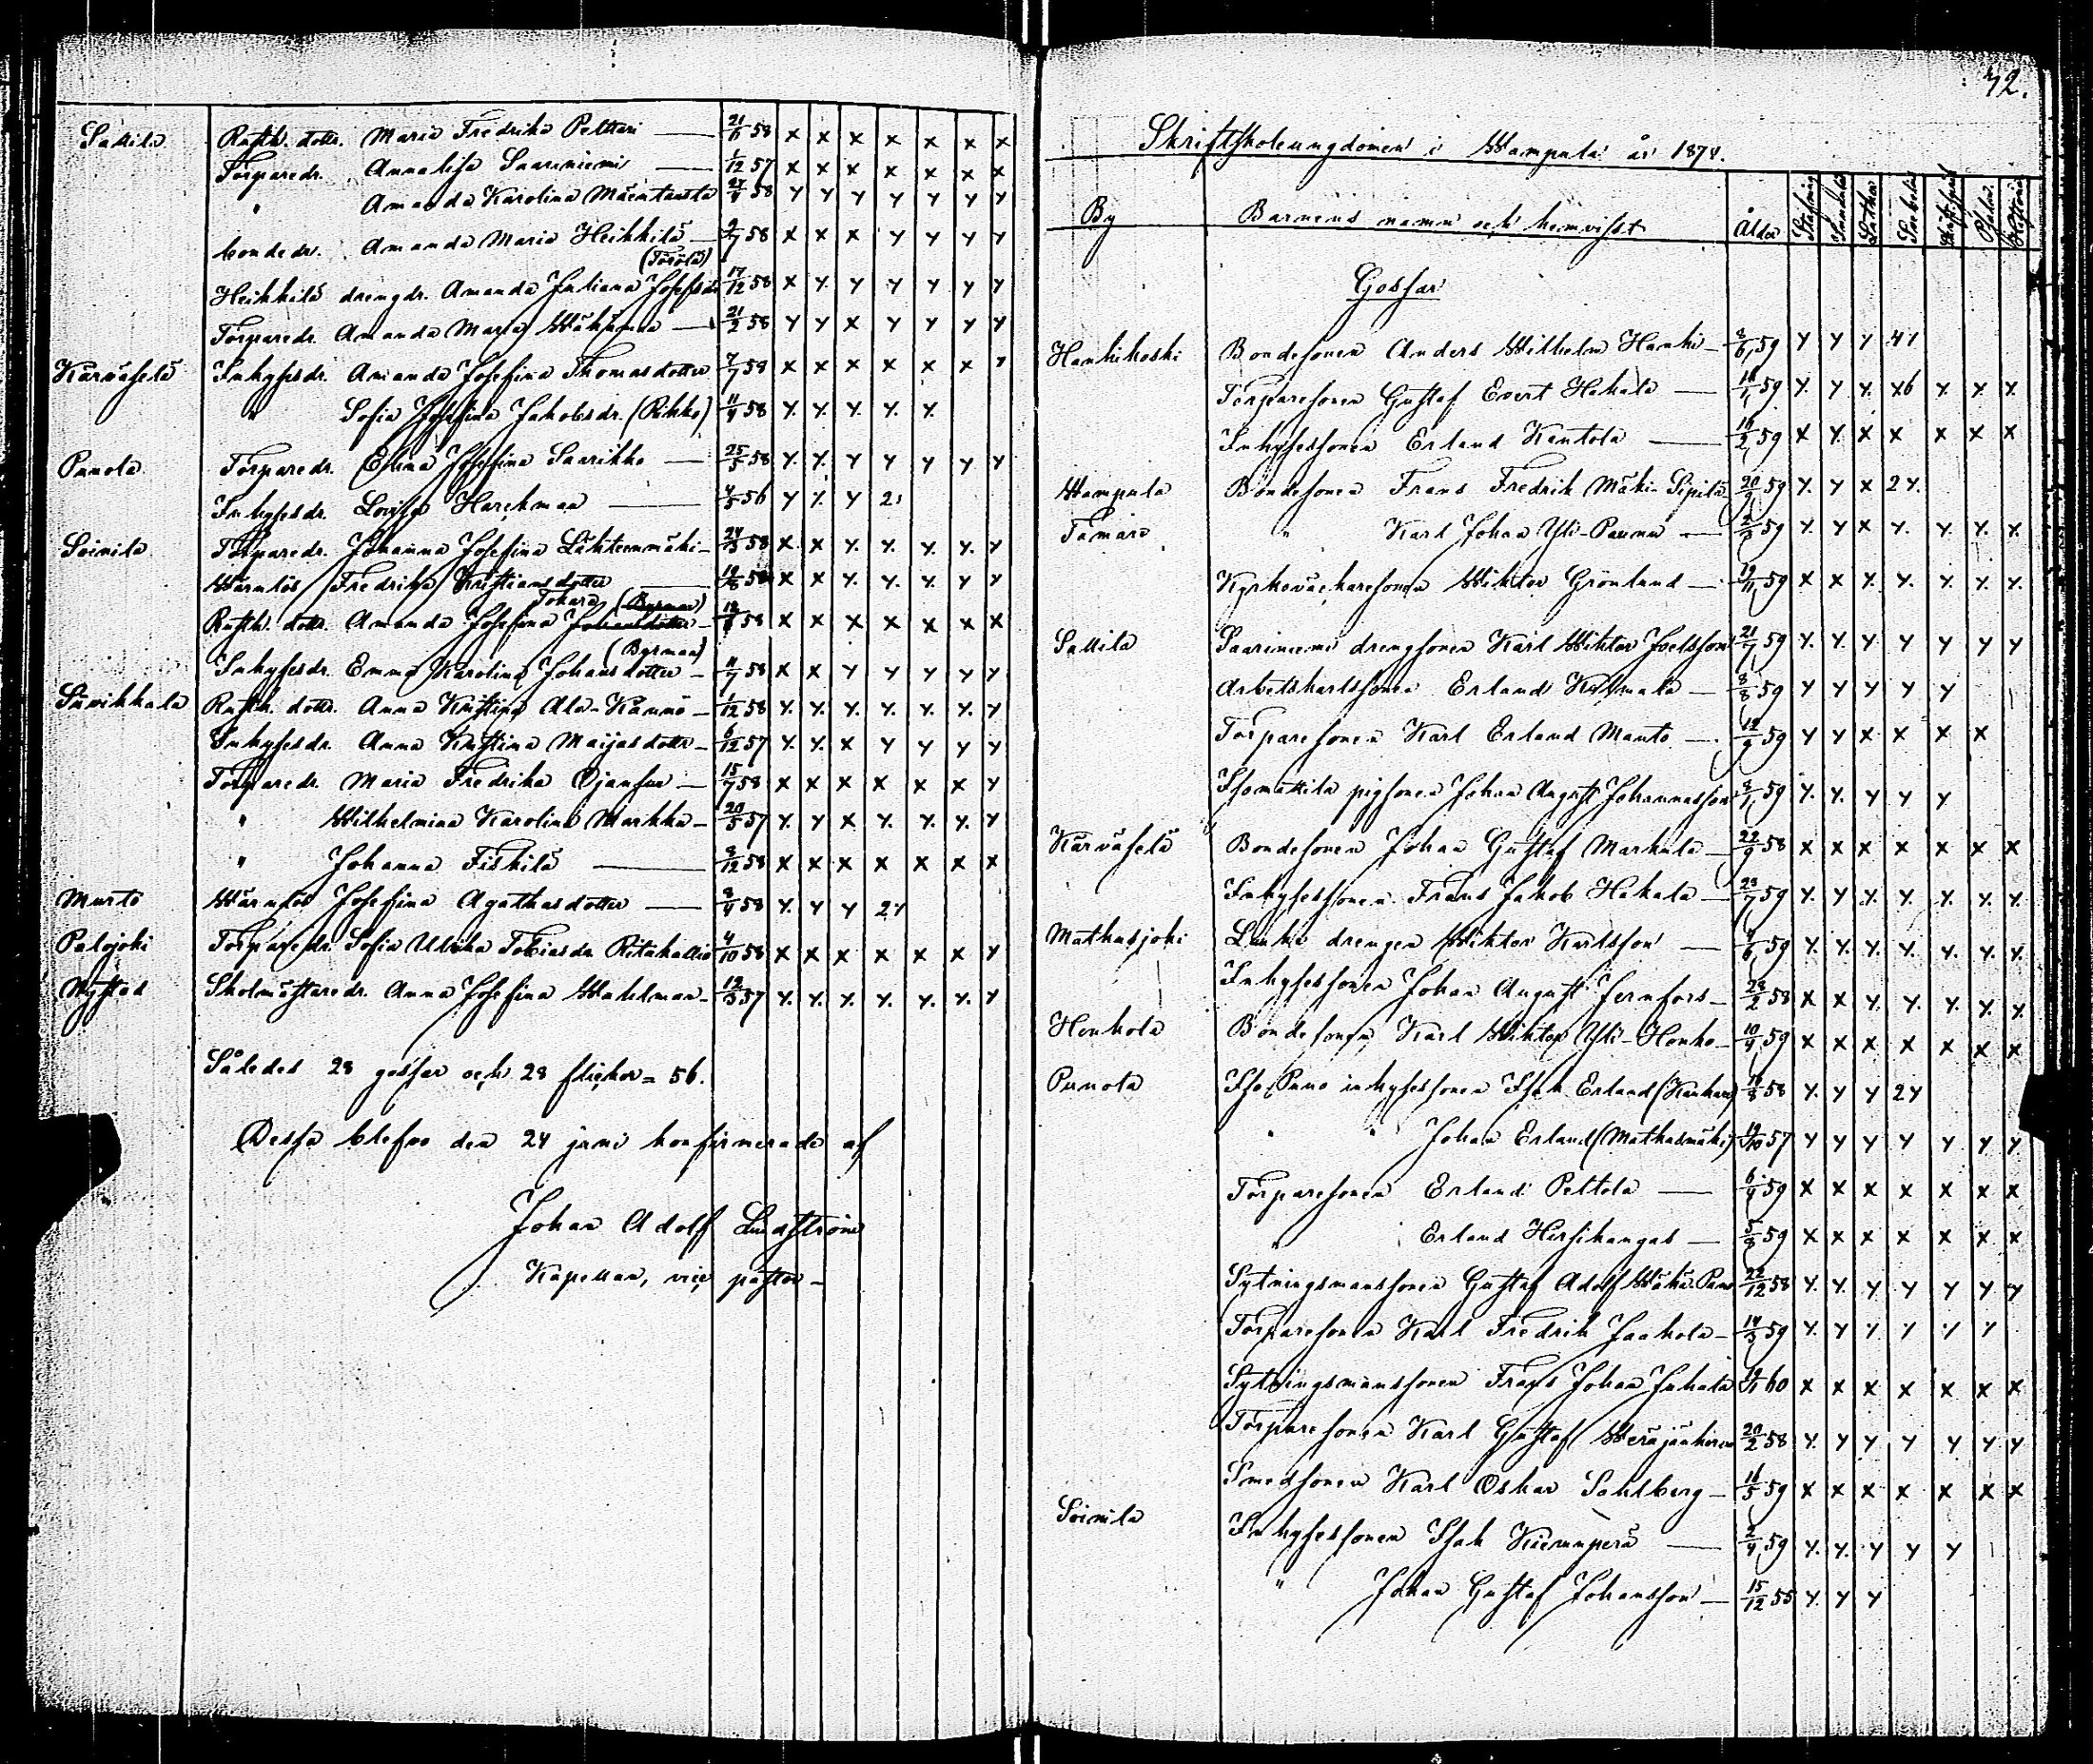 Sallila Rusth. dottr. Maria Fredrika Peltari — 21/6 58 x x x x x x x
Torparedr. Annalisa Saariniemi — 1/12 57 x x x x x x x
" Amanda Karolina Mäentausta 27/4 58 y y y y y y y
bondedr. Amanda Maria Heikkilä — 2/7 58 x x x y y y y
(Törölä)
Heikkilä drengdr. Amanda Juliana Josefsdr 17/12 58 x y y y y y y
Torparedr. Amanda Maria — 21/2 58 y y x y y y y
Kärväselä Inhysesdr. Amanda Josefina Thomasdotter 7/7 58 x x x x x x y
" Sofia Josefina Jakobsdr. (Rikko) 11/4 58 y y y y y
Punola Torparedr. Elina Josefina Saarikko — 25/5 58 y y y y y y y
Inhysesdr. Lovisa Harckman — 4/5 56 y y y 2
Soinila Torparedr. Johanna Josefina Lähteenmäki — 24/3 58 x x y y y y y
Wärnlös Fredrika Kristiansdotter — 19/8 58 x x y y y y y
Tokara (Byrman)
Rusth. dottr. Amanda Josefina Johansdotter — 58 x x x x x x x
(Byrman)
Inhysesdr. Emma Karolina Johansdotter — 11/7 58 x x y y y y y
Suvikkala Rusth. dottr. Anna Kristina Ala-Kauno — 1/12 58 y y y y y y y
Inhysesdr. Anna Kristina Maijasdotter — 6/12 57 y y x y y y y
Torparedr. Maria Fredrika Ojansuu — 15/7 58 x x x x x x y
" Wilhelmina Karolina Markka — 20/5 57 y y x y y y y
" Johanna Fiskilä — 8/12 58 x x x x x x x
Murto Wärnlös Josefina Agathasdotter — 2/4 58 y y y 2y
Palojoki Torparedr. Sofia Ulrika Tobiasdr Ritakallio 4/10 58 x x x x x x y
Nystad Skolmästaredr. Anna Josefina Wahlman — 12/3 57 y y y y y y y
Således 28 gossar och 28 flickor = 56.
Dessa blefvo den 24 juni konfirmerade af
Johan Adolf Lindström
Kapellan, vice pastor —
72.
Skriftskoleungdomen i Wampula år 1874.
By Barnens namn och hemvisst Ålder
Gossar
Hankikoski Bondesonen Anders Wilhelm Hanki — 8/6 59 y y y 4y
Torparesonen Gustaf Evert Hakala — 18/1 59 y y y x6 y y y
Inhysessonen Erland Kantola — 16/2 59 x y x x x x x
Wampula Bondesonen Frans Fredrik Mäki-Sipilä 20/9 59 y y x 2y
Tamare " Karl Johan Yli-Paunu — 2/3 59 y y x y y y y
Kyrkoväktaresonen Wiktor Grönlund — 19/11 59 x x y y y y y
Sallila Saariniemi drengsonen Karl Wiktor Joelsson 21/7 59 y y y y y y y
Arbetskarlssonen Erland Kilmala — 8/8 59 y y y y y
Torparesonen Karl Erland Manto — 12/9 59 y y x x x x
Isomattila pigsonen Johan August Johannasson 8/1 59 y y y y y
Kärväselä Bondesonen Johan Gustaf Markula — 22/9 58 x x x x x x x
Inhysessonen Frans Jakob Hakala — 23/7 59 y y y y y y y
Mathusjoki drengen Wiktor Karlsson — 59 y y y y y y y
Inhysessonen Johan August Jernfors — 28/2 58 x x y y y y y
Honkola Bondesonen Karl Wiktor Yli-Honko — 10/4 59 x x x x x x x
Punola Iso Puno inhysessonen Isak Erland (Kankare) 18/8 58 y y y 2y
" " Johan Erland (Mathasmäki) 19/10 57 y y y y y y y
Torparesonen Erland Peltola — 6/4 59 x x x x x x x
" Erland Hirsikangas — 5/8 59 x x x x x x x
Sytningsmanssonen Gustaf Adolf Wähä-Puno 22/12 58 y y y y y y y
Torparesonen Karl Fredrik Jaakola — 14/3 59 y y y y y y
Sytningsmanssonen Frans Johan Juhala 60 x x x x x x x
Torparesonen Karl Gustaf Weräjänkorva 20/2 58 y y y y y y y
Smedsonen Karl Oskar Sahlberg — 16/5 59 x x x x x x x
Soinila Inhysessonen Isak Kiemunperä — 2/4 59 y y y y y
" Johan Gustaf Johansson — 15/12 55 y y y